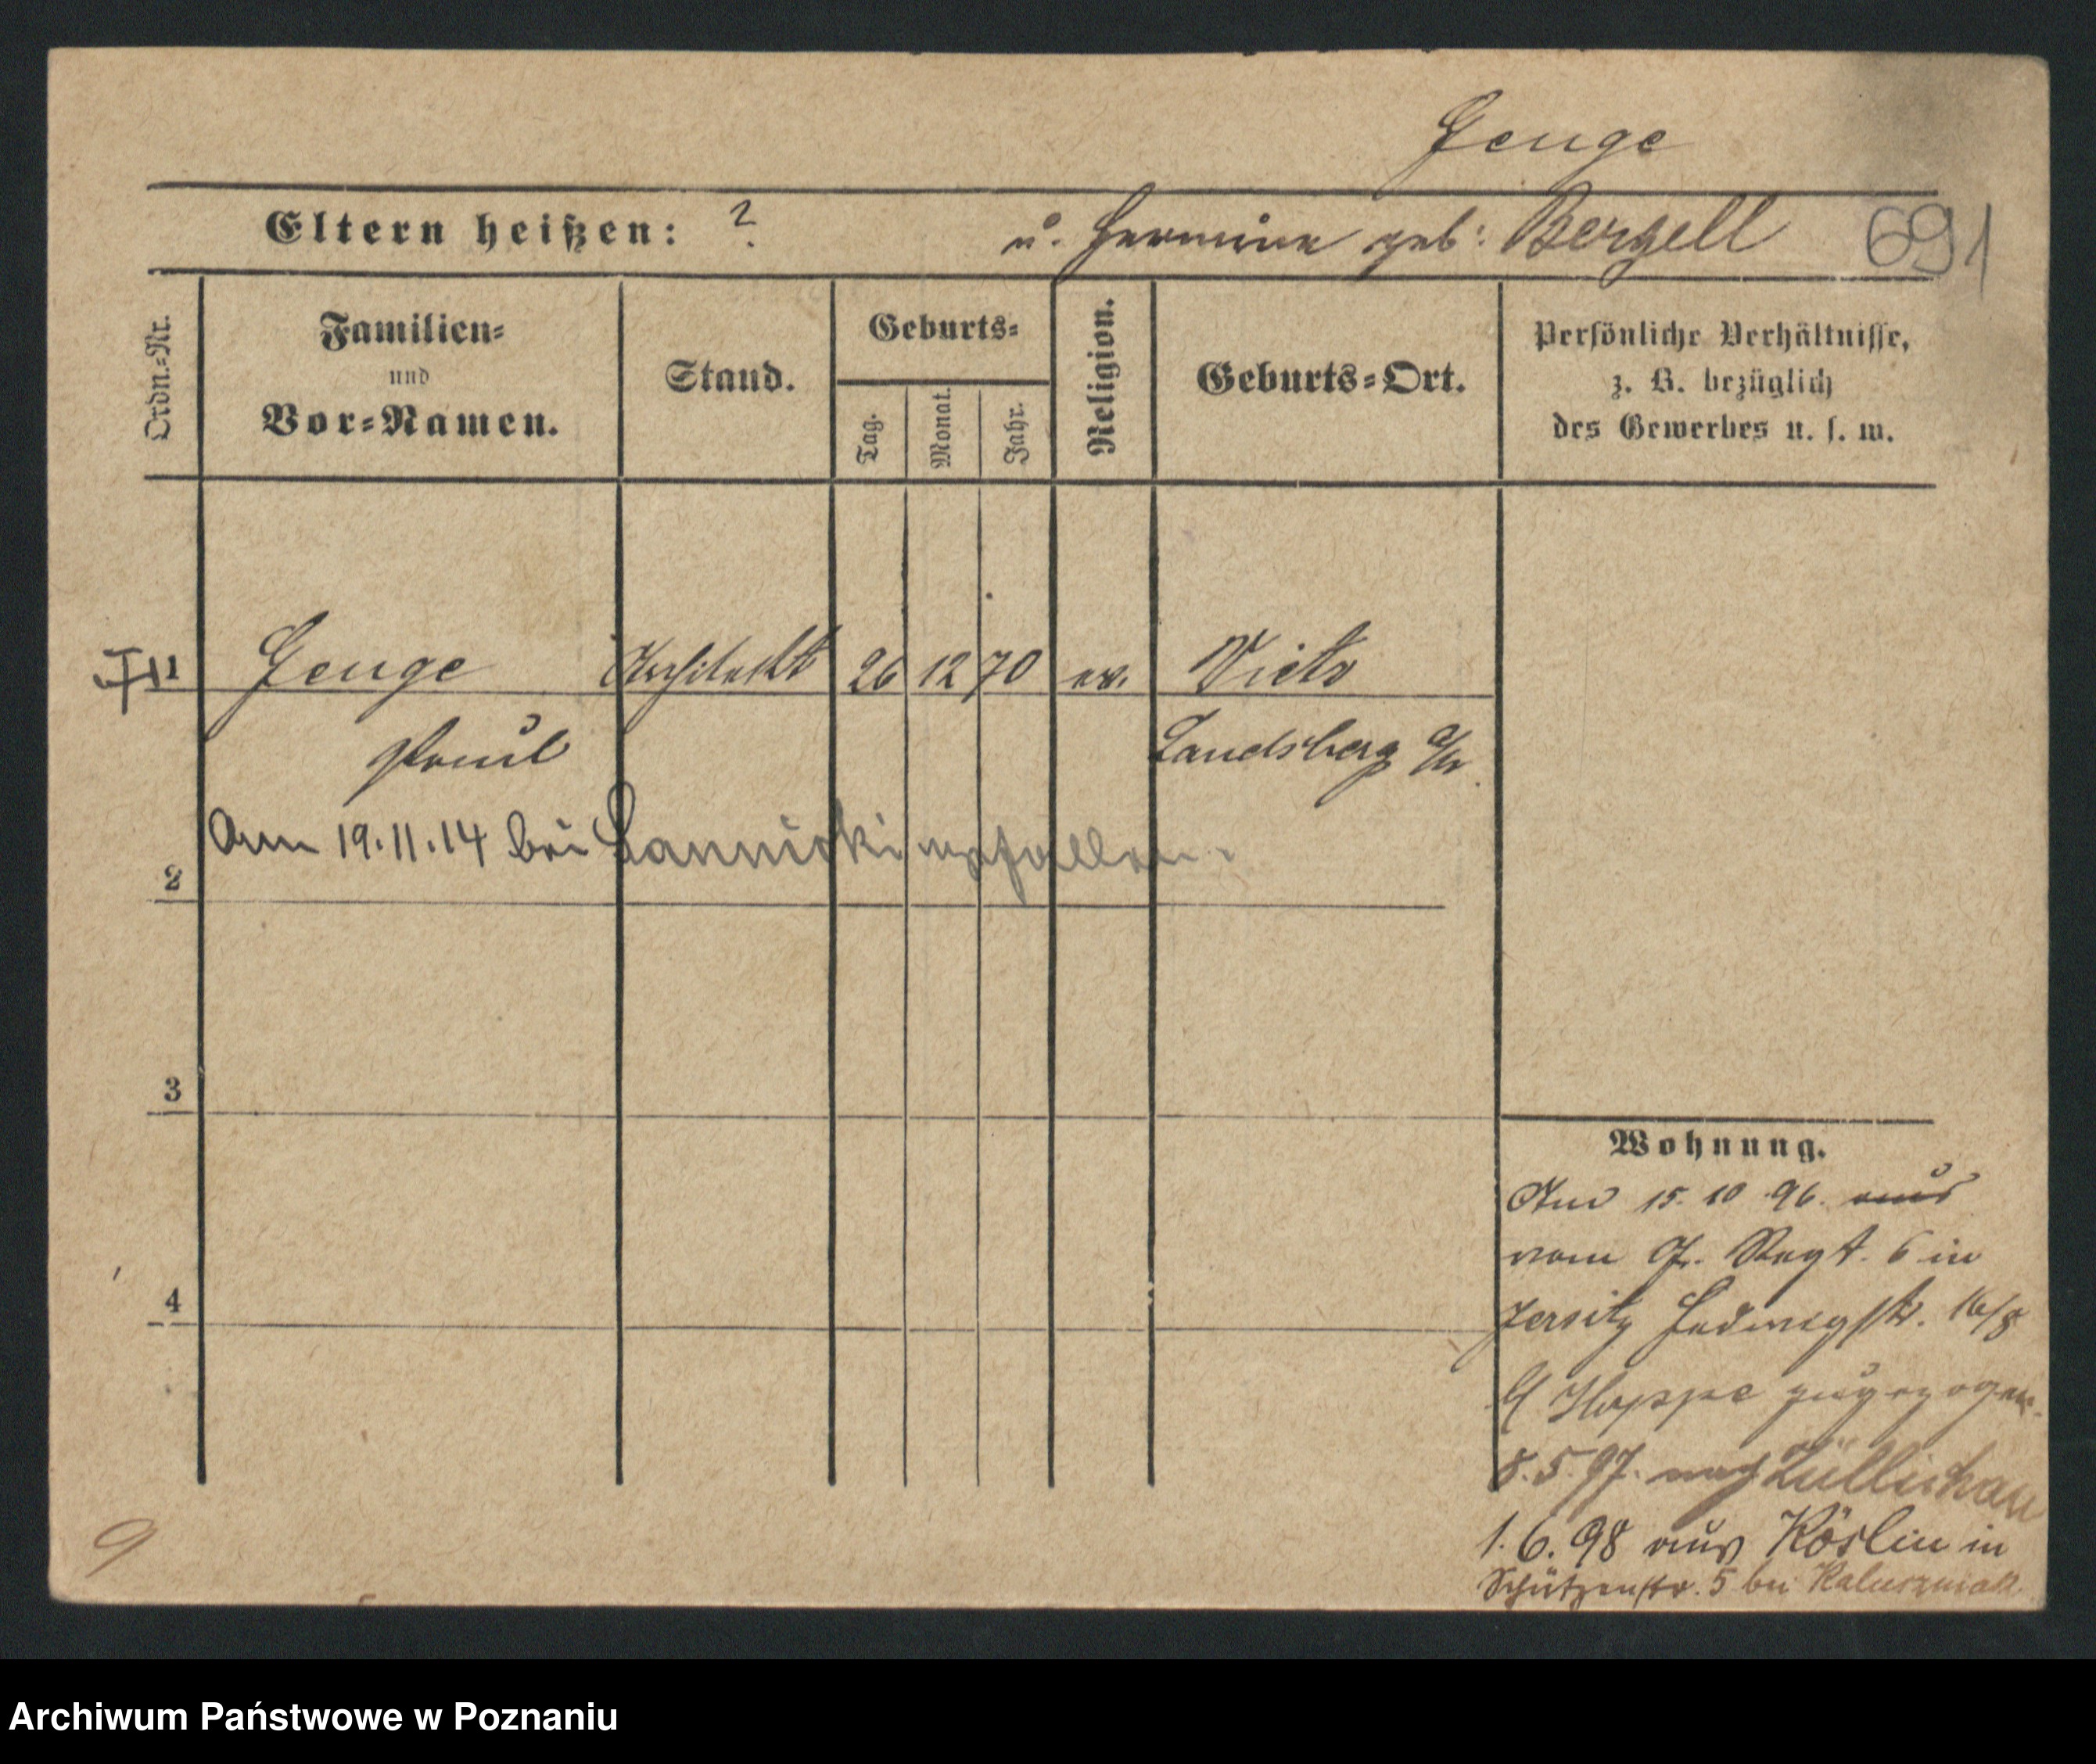 Genge
Eltern heißen: ? u. Hermine geb: Bergell 691
Ordn.=Nr.
Familien=
und
Vor=Namen.
Stand.
Geburts=
Tag.
Monat.
Jahr.
Religion.
Geburts=Ort.
Persönliche Verhältnisse,
z. B. bezüglich
des Gewerbes u. s. w.
1 Genge Architekt 26 12 70 ev. Vietz
Paul Landsberg a/W.
Am 19.11.14 bei gefallen.
2
3
4
Wohnung.
Am 15. 10 96. aus
vom Regt. 6 in
Jersitz Hedwigstr. 16/8
b/ Hoppe zugezogen.
8.5.97. nach Züllichau
1.6.98 aus Köslin in
Schützenstr. 5 bei Kaluszniak
9
Archiwum Państwowe w Poznaniu